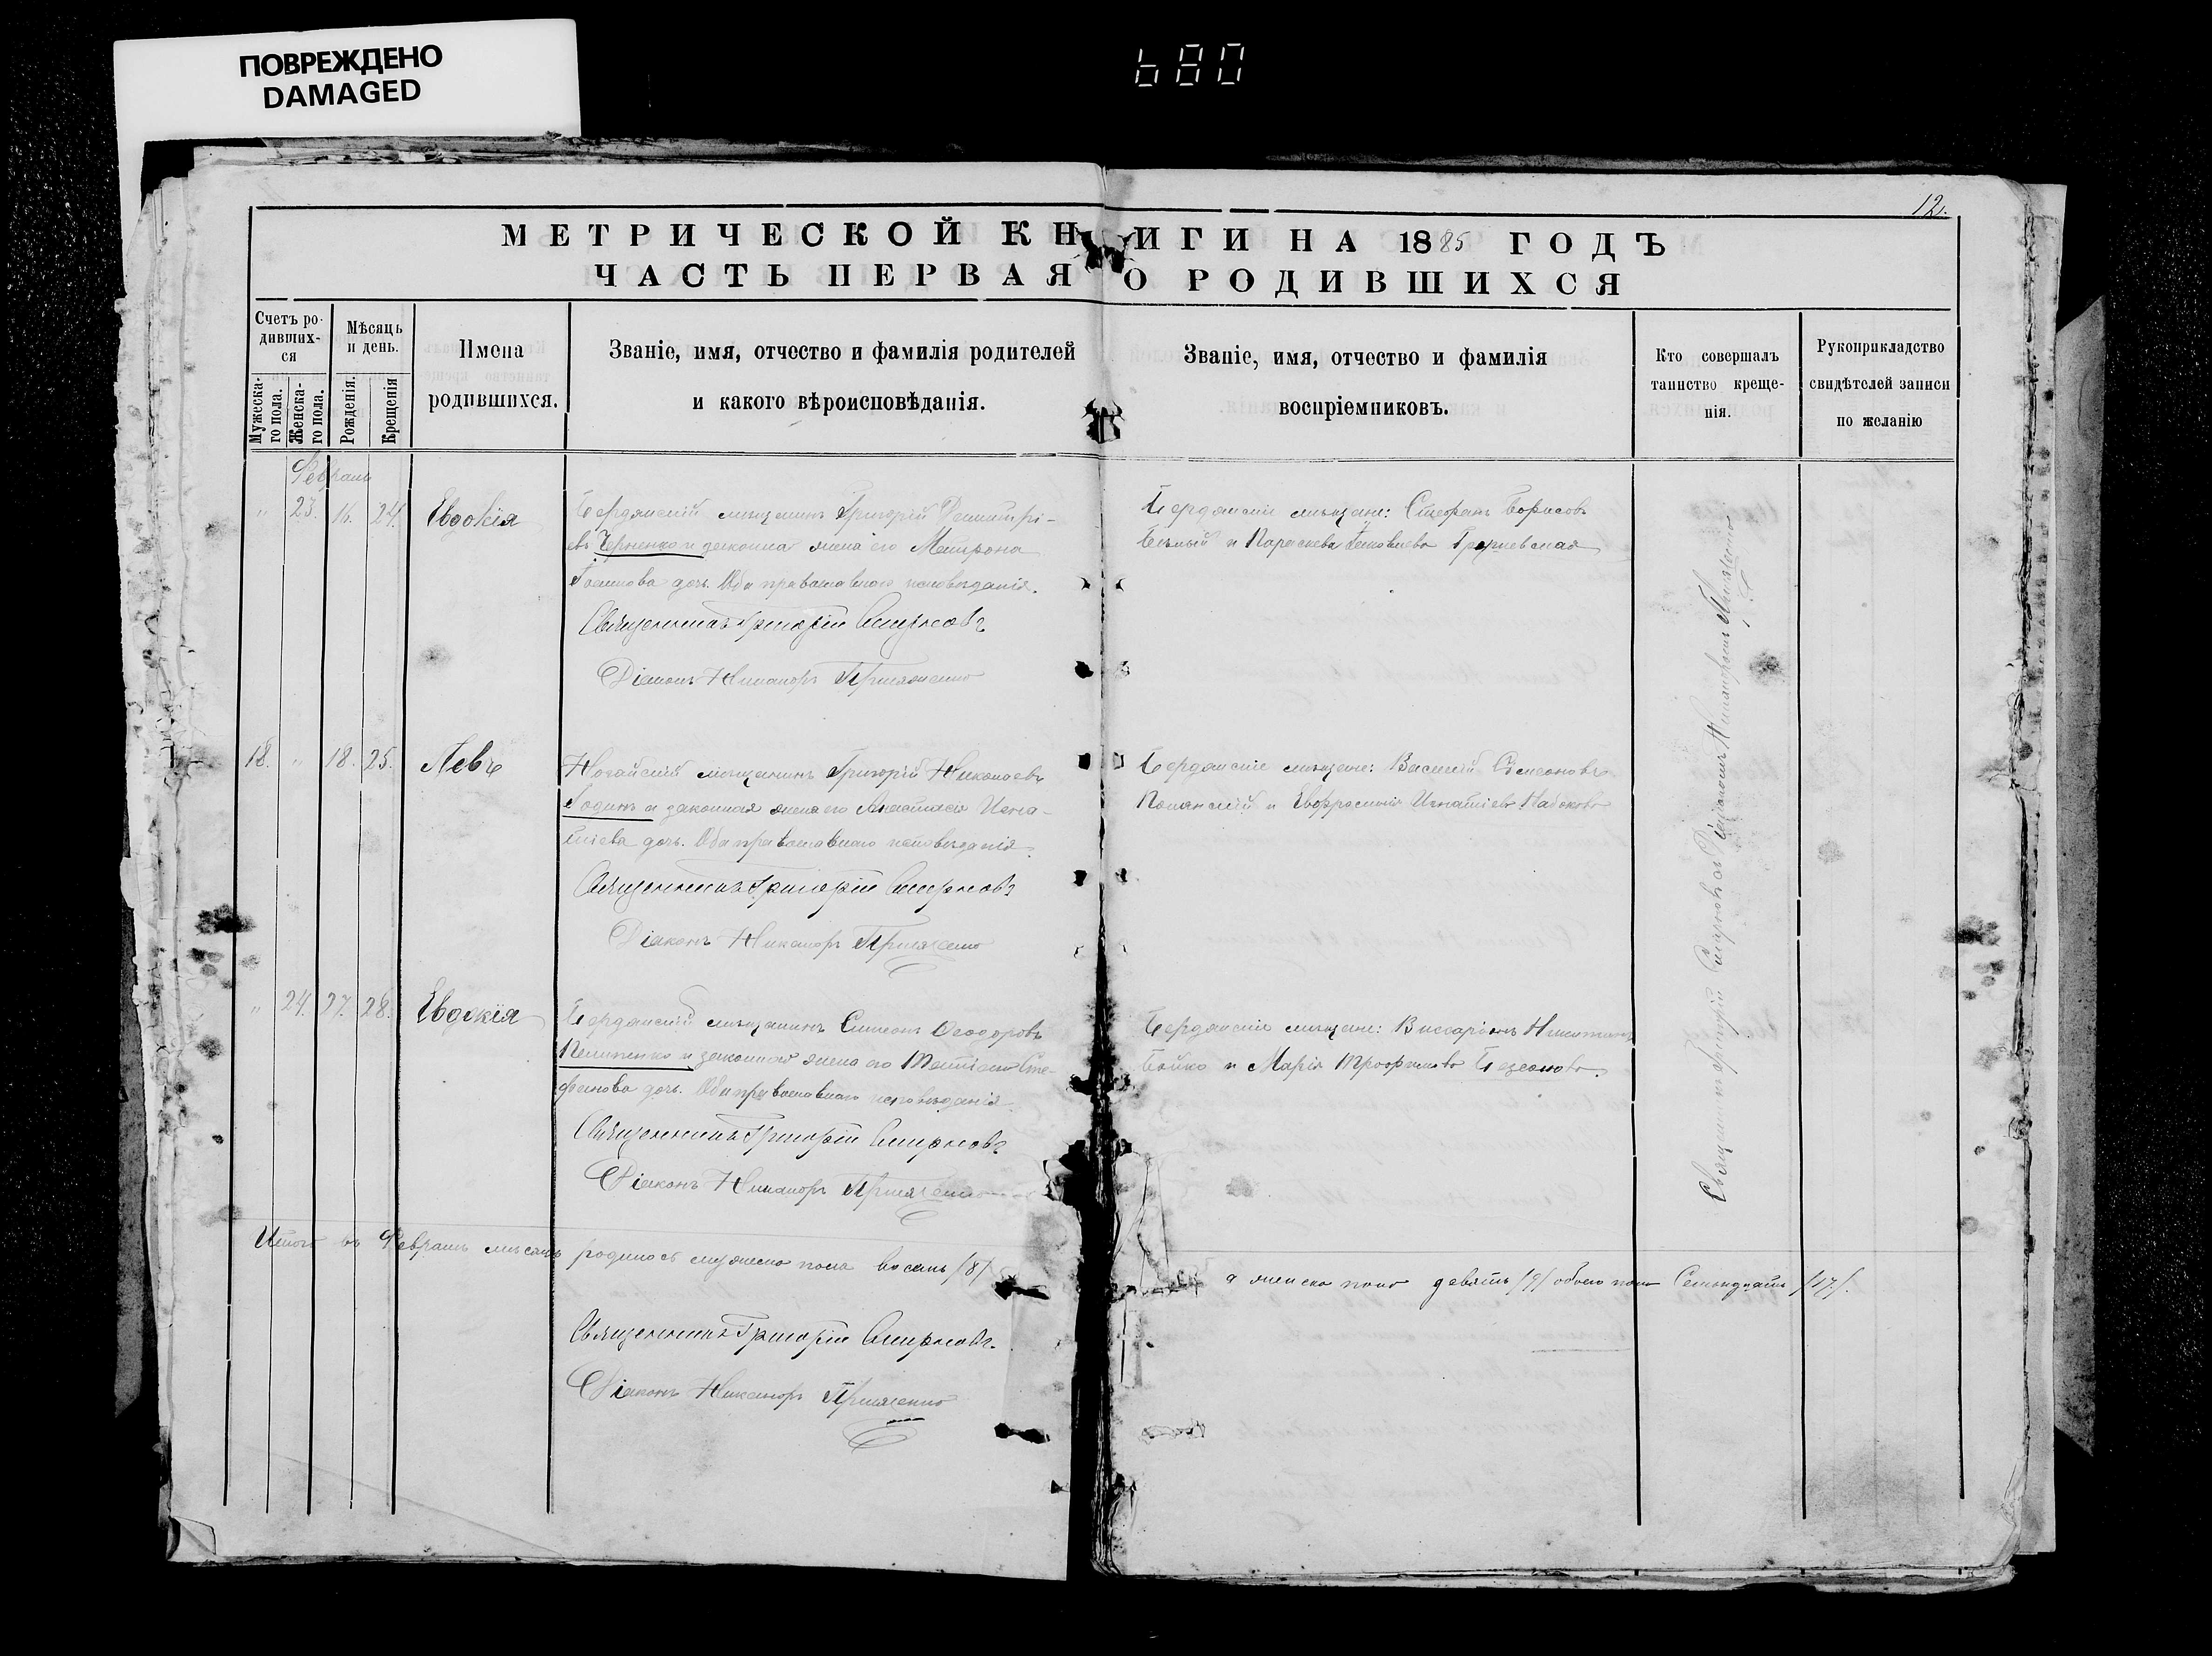 ПОВРЕЖДЕНО
DAMAGED
680
12.
МЕТРИЧЕСКОЙ КНИГИ НА 1885 ГОДЪ
ЧАСТЬ ПЕРВАЯ О РОДИВШИХСЯ
Счетъ ро-
дивших-
ся
Мужеска-
го пола.
Женска-
го пола.
Мѣсяць
и день.
Рожденія.
Крещенія
Имена
родившихся.
Званіе, имя, отчество и фамилія родителей
и какого вѣроисповѣданія.
Званіе, имя, отчество и фамилія
воспріемниковъ.
Кто совершалъ
таинство креще-
нія.
Рукоприкладство
свидѣтелей записи
по желанію
Февраль
" 23. 16. 24. Евдокія
Бердянскій мѣщанинъ Григорій Димитрі-
евъ Черненко и законная жена его Матрона
дочь. Оба православнаго исповѣданія.
Священникъ Григорій Смирновъ
Діаконъ Никаноръ
Бердянскіе мѣщане: Стефанъ Борисовъ
и Параскева
18. " 18. 25. Левъ
Ногайскій мѣщанинъ Григорій Николаевъ
Годинъ и законная жена его Анастасія Игна-
тіева дочь. Оба православнаго исповѣданія.
Священникъ Григорій Смирновъ
Діаконъ Никаноръ
Бердянскіе мѣщане: Василій Симеоновъ
и Евфросинія Игнатіева Набокова
" 24. 27. 28. Евдокія
Бердянскій мѣщанинъ Симеонъ Ѳеодоровъ
и законная жена его Татіана Сте-
фанова дочь. Оба православнаго исповѣданія.
Священникъ Григорій Смирновъ
Діаконъ Никаноръ
Бердянскіе мѣщане: Виссаріонъ Никитинъ
Бойко и Марія Трофимова
Священникъ Григорій Смирновъ съ Діакономъ Никаноромъ
Итого въ Февралѣ мѣсяцѣ родилось мужеска пола восемь /8/
а женска пола девять /9/ обоего пола Семнадцать /17/.
Священникъ Григорій Смирновъ.
Діаконъ Никаноръ